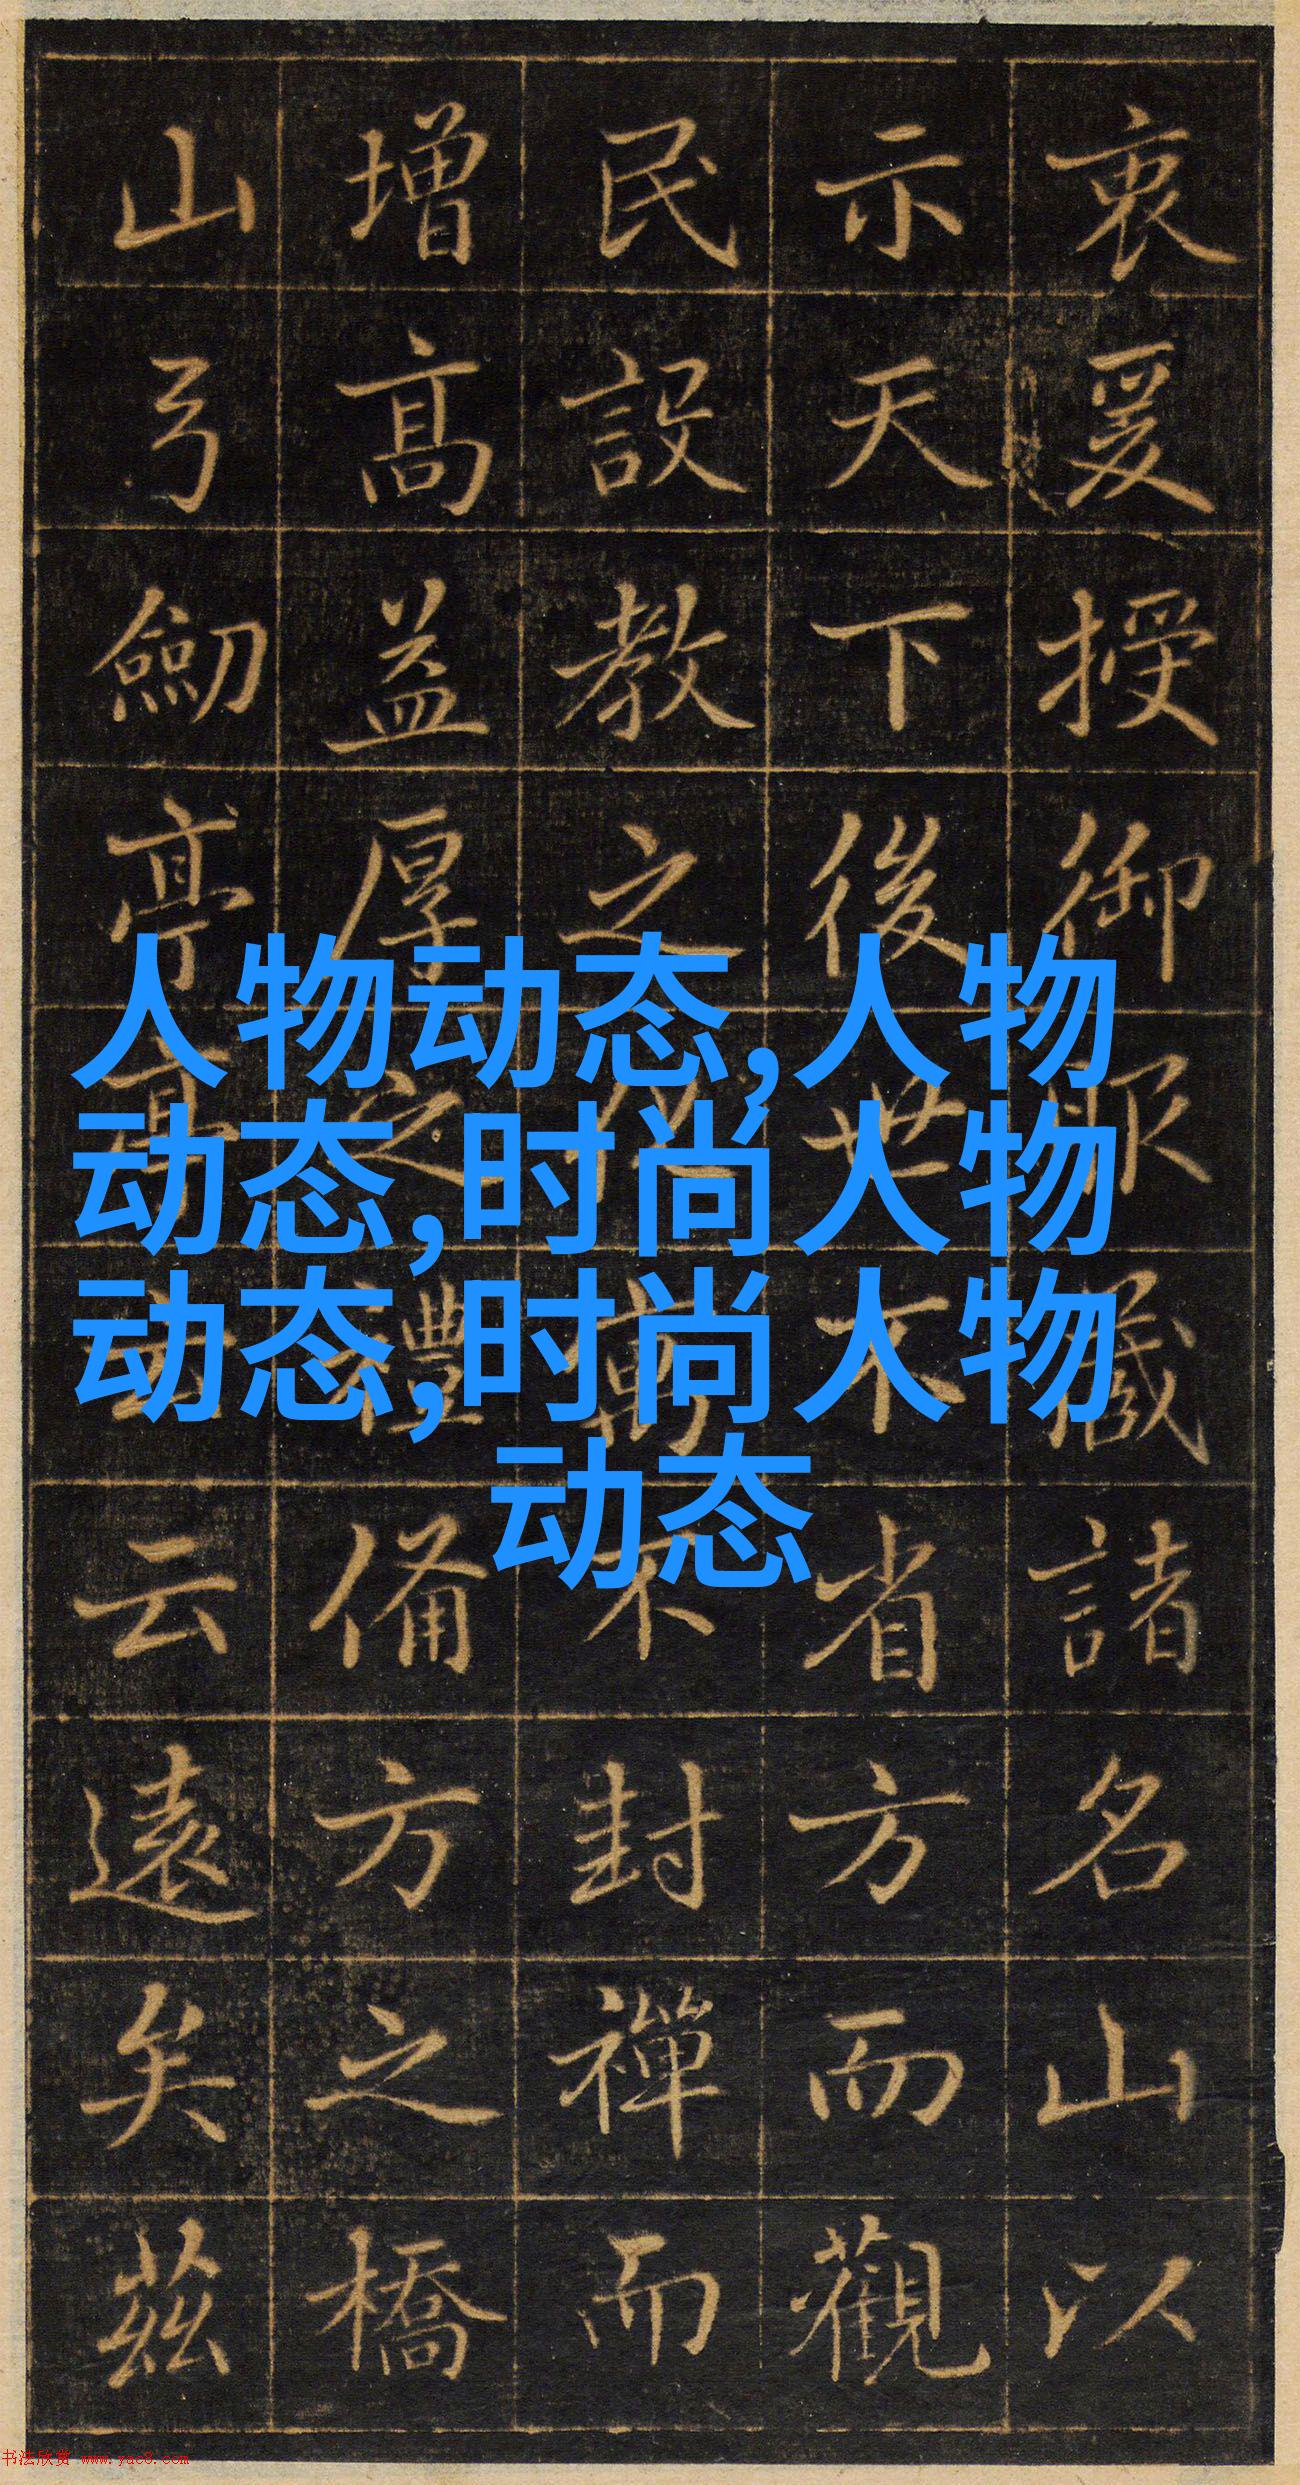 衷爰授御服藏諸名山以
示天下後世不省方而觀
民設教之不封禪而
增高益厚之禮備方之橋
山弓劒亭亭云云遠矣茲
人物动态,人物
动态,时尚人物
动态,时尚人物
动态
书法欣赏 www.yac8.com